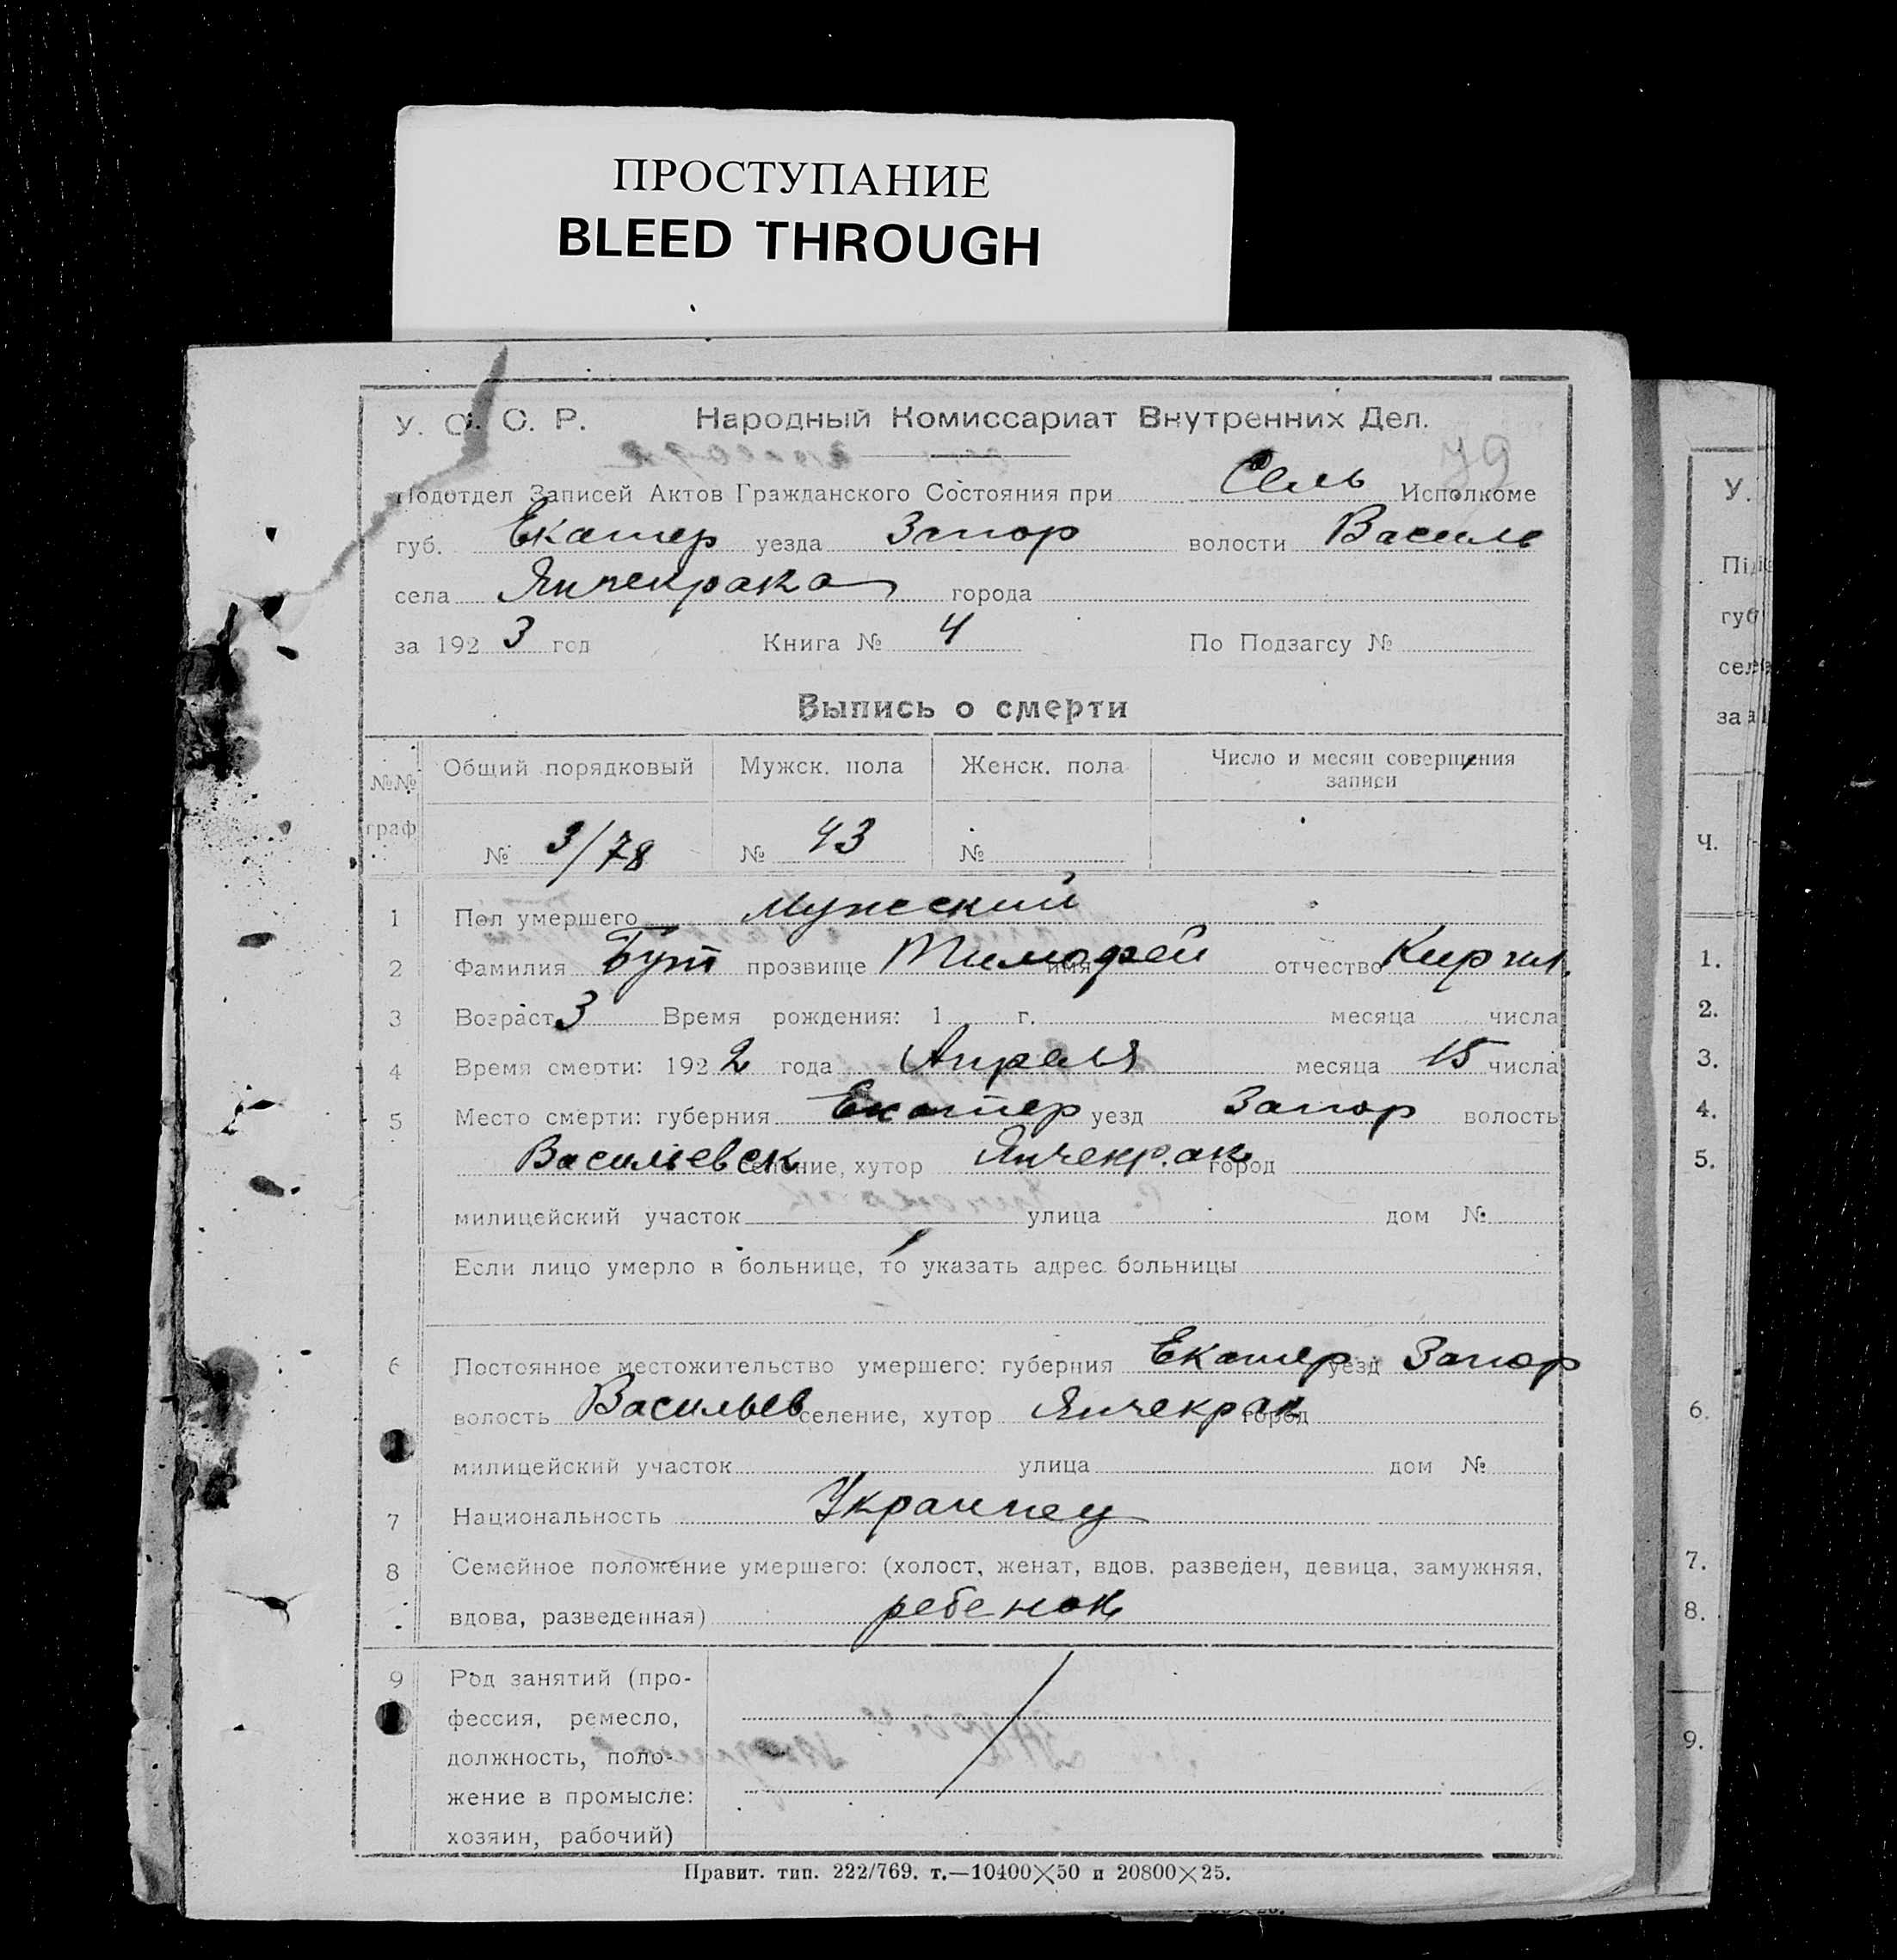 ПРОСТУПАНИЕ
BLEED THROUGH
У. С. С. Р. Народный Комиссариат Внутренних Дел.
79
Подотдел Записей Актов Гражданского Состояния при Сель Исполкоме
губ. Екатер уезда Запор волости Василь
села Янчекрака города
за 1923 год Книга № 4 По Подзагсу №
Выпись о смерти
№№ граф Общий порядковый Мужск. пола Женск. пола Число и месяц совершения записи
№ 3/78 № 43 №
1 Пол умершего мужеский
2 Фамилия Бут прозвище Тимофей имя отчество Кирил.
3 Возраст 3 Время рождения: 1 г. месяца числа
4 Время смерти: 1922 года Апреля месяца 15 числа
5 Место смерти: губерния Екатер уезд Запор волость
Васильевск селение, хутор Янчекрак город
милицейский участок улица дом №
Если лицо умерло в больнице, то указать адрес больницы
6 Постоянное местожительство умершего: губерния Екатер уезд Запор
волость Васильев селение, хутор Янчекрак город
милицейский участок улица дом №
7 Национальность Украинец
8 Семейное положение умершего: (холост, женат, вдов. разведен, девица, замужняя,
вдова, разведенная) ребенок
9 Род занятий (про-
фессия, ремесло,
должность, поло-
жение в промысле:
хозяин, рабочий)
Правит. тип. 222/769. т.—10400×50 и 20800×25.
У.
губ
за
Ч.
1.
2.
3.
4.
5.
6.
7.
8.
9.